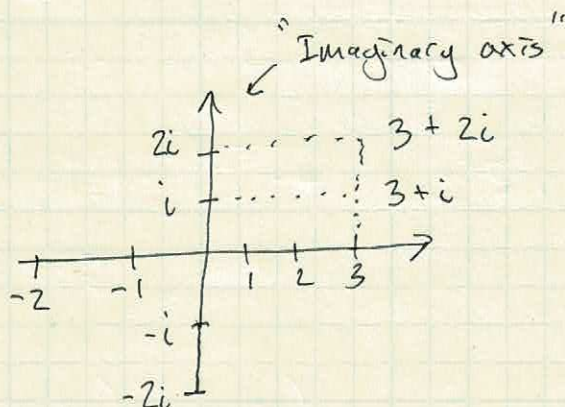 "Imaginary axis"
2i 3 + 2i
i 3 + i
-2 -1 1 2 3
-i
-2i